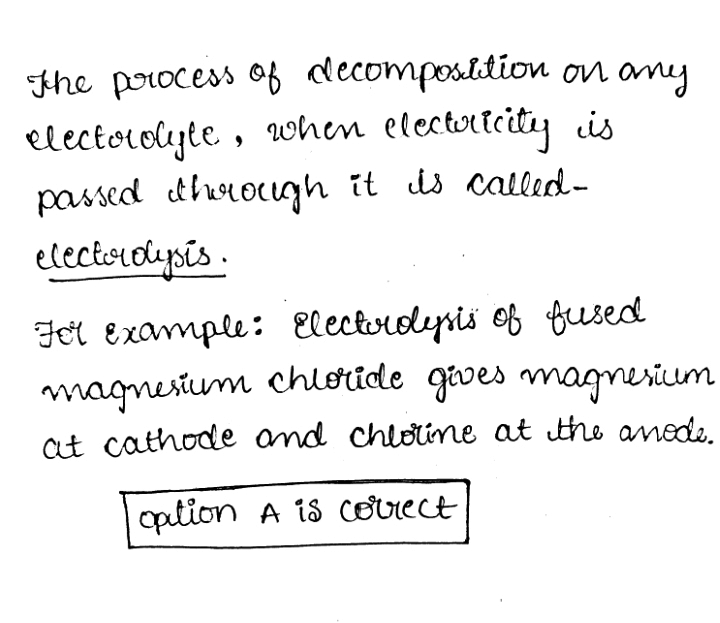 The process of decomposition on any
electrolyte, when electricity is
passed through it is called-
electrolysis.
For example: Electrolysis of fused
magnesium chloride gives magnesium
at cathode and chlorine at the anode.
option A is correct